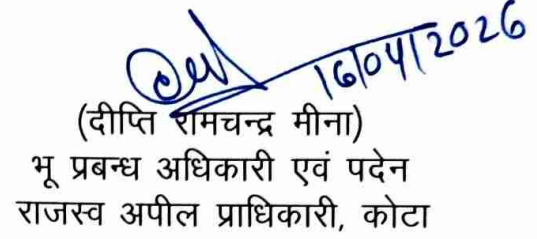 16/04/2026
(दीप्ति रामचन्द्र मीना)
भू प्रबन्ध अधिकारी एवं पदेन
राजस्व अपील प्राधिकारी, कोटा